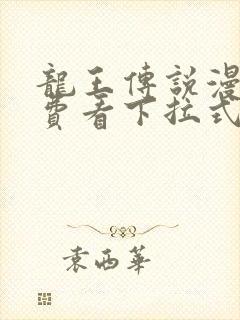 龍王傳說漫
費看下拉式
袁西華